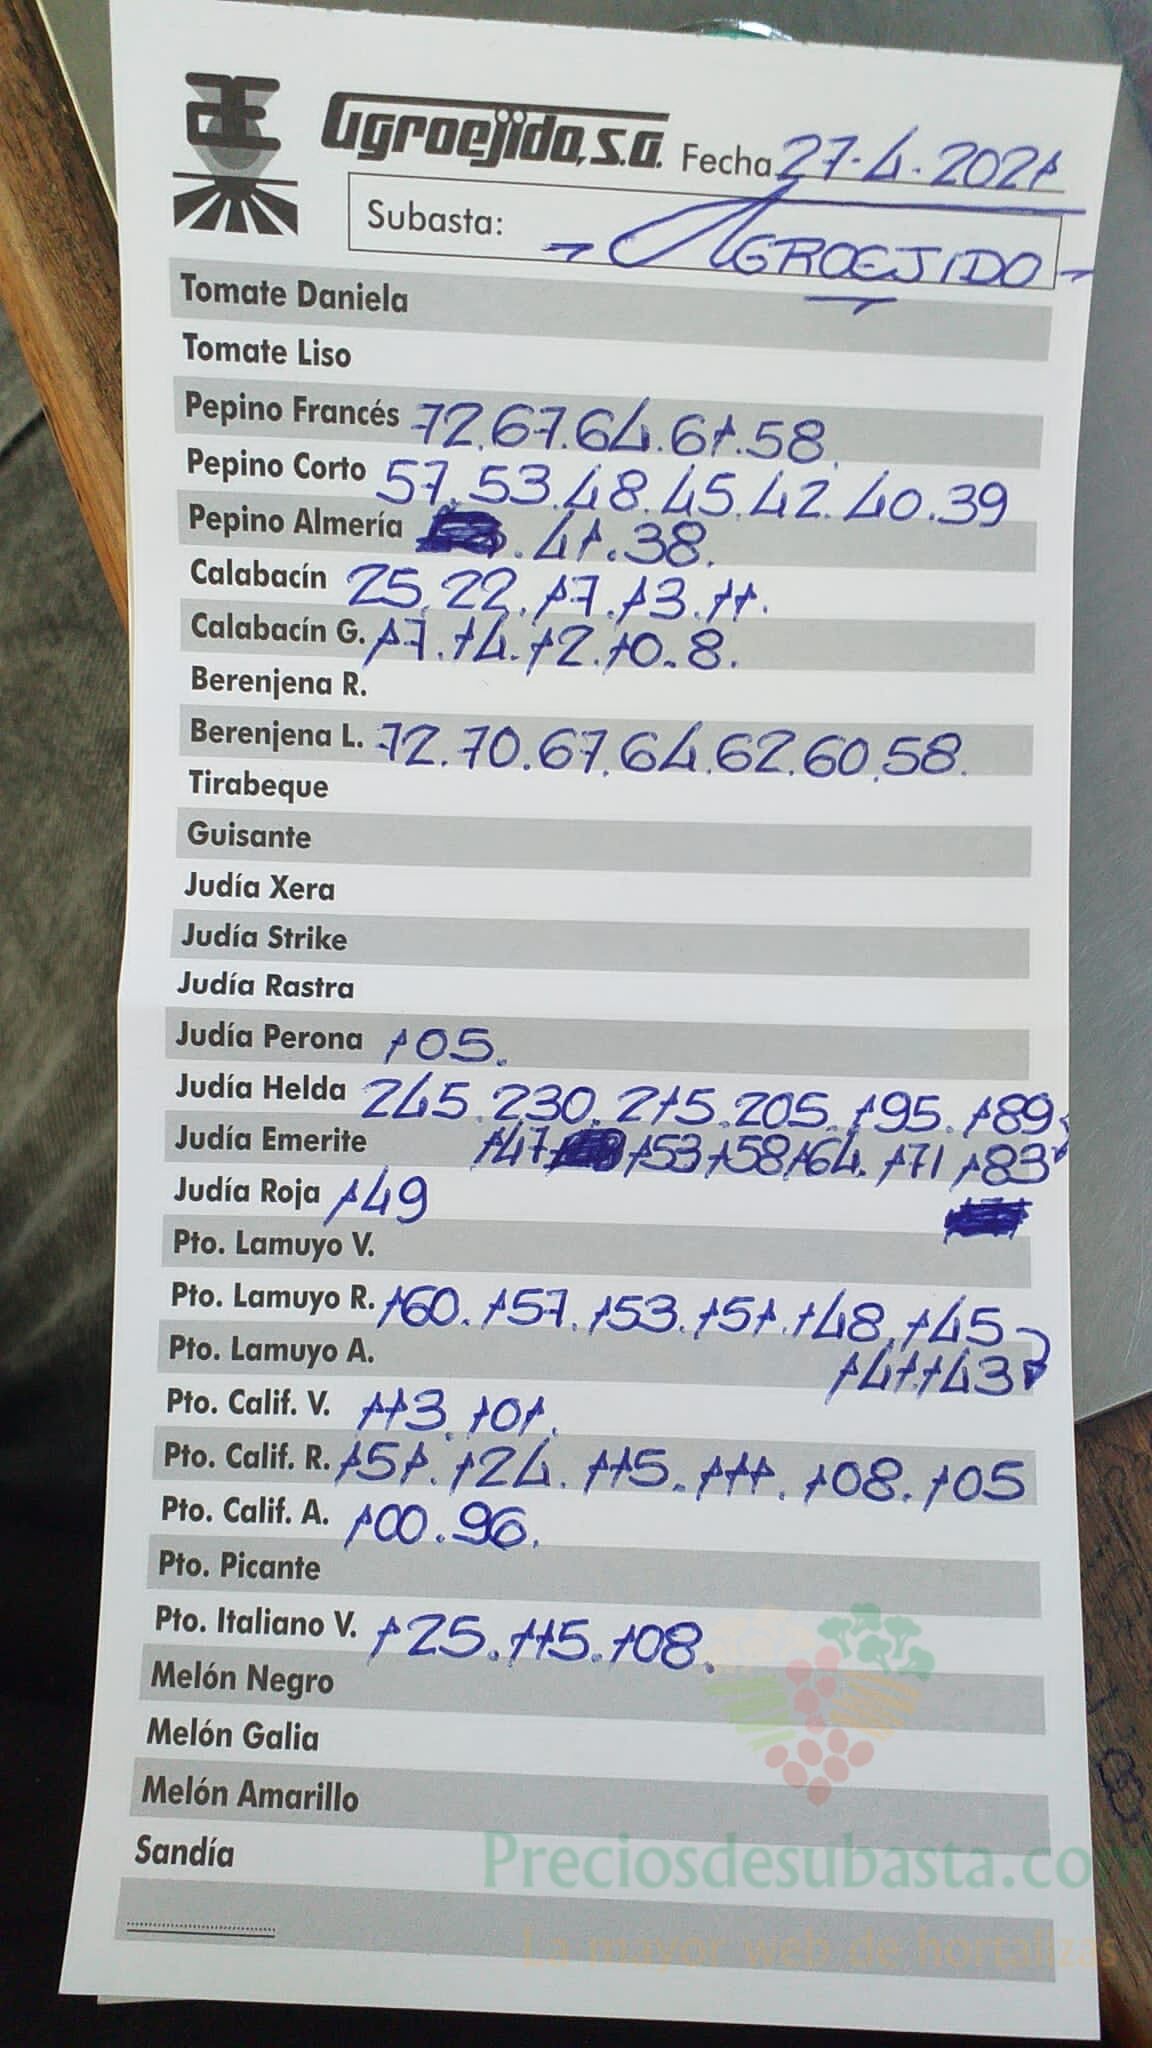 Agroejido, S.A. Fecha 27-4-2021
Subasta: AGROEJIDO
Tomate Daniela
Tomate Liso
Pepino Francés 72.67.64.61.58.
Pepino Corto 57.53.48.45.42.40.39
Pepino Almería .41.38.
Calabacín 25.22.17.13.11.
Calabacín G. 17.14.12.10.8.
Berenjena R.
Berenjena L. 72.70.67.64.62.60.58.
Tirabeque
Guisante
Judía Xera
Judía Strike
Judía Rastra
Judía Perona 105.
Judía Helda 245.230.215.205.195.189
Judía Emerite 147 153 158 164. 171 183
Judía Roja 149
Pto. Lamuyo V.
Pto. Lamuyo R. 160.157.153.151.148.145
Pto. Lamuyo A. 141.143
Pto. Calif. V. 113.101.
Pto. Calif. R. 151.124.115.111.108.105
Pto. Calif. A. 100.96.
Pto. Picante
Pto. Italiano V. 125.115.108.
Melón Negro
Melón Galia
Melón Amarillo
Preciosdesubasta.com
Sandía
La mayor web de hortalizas